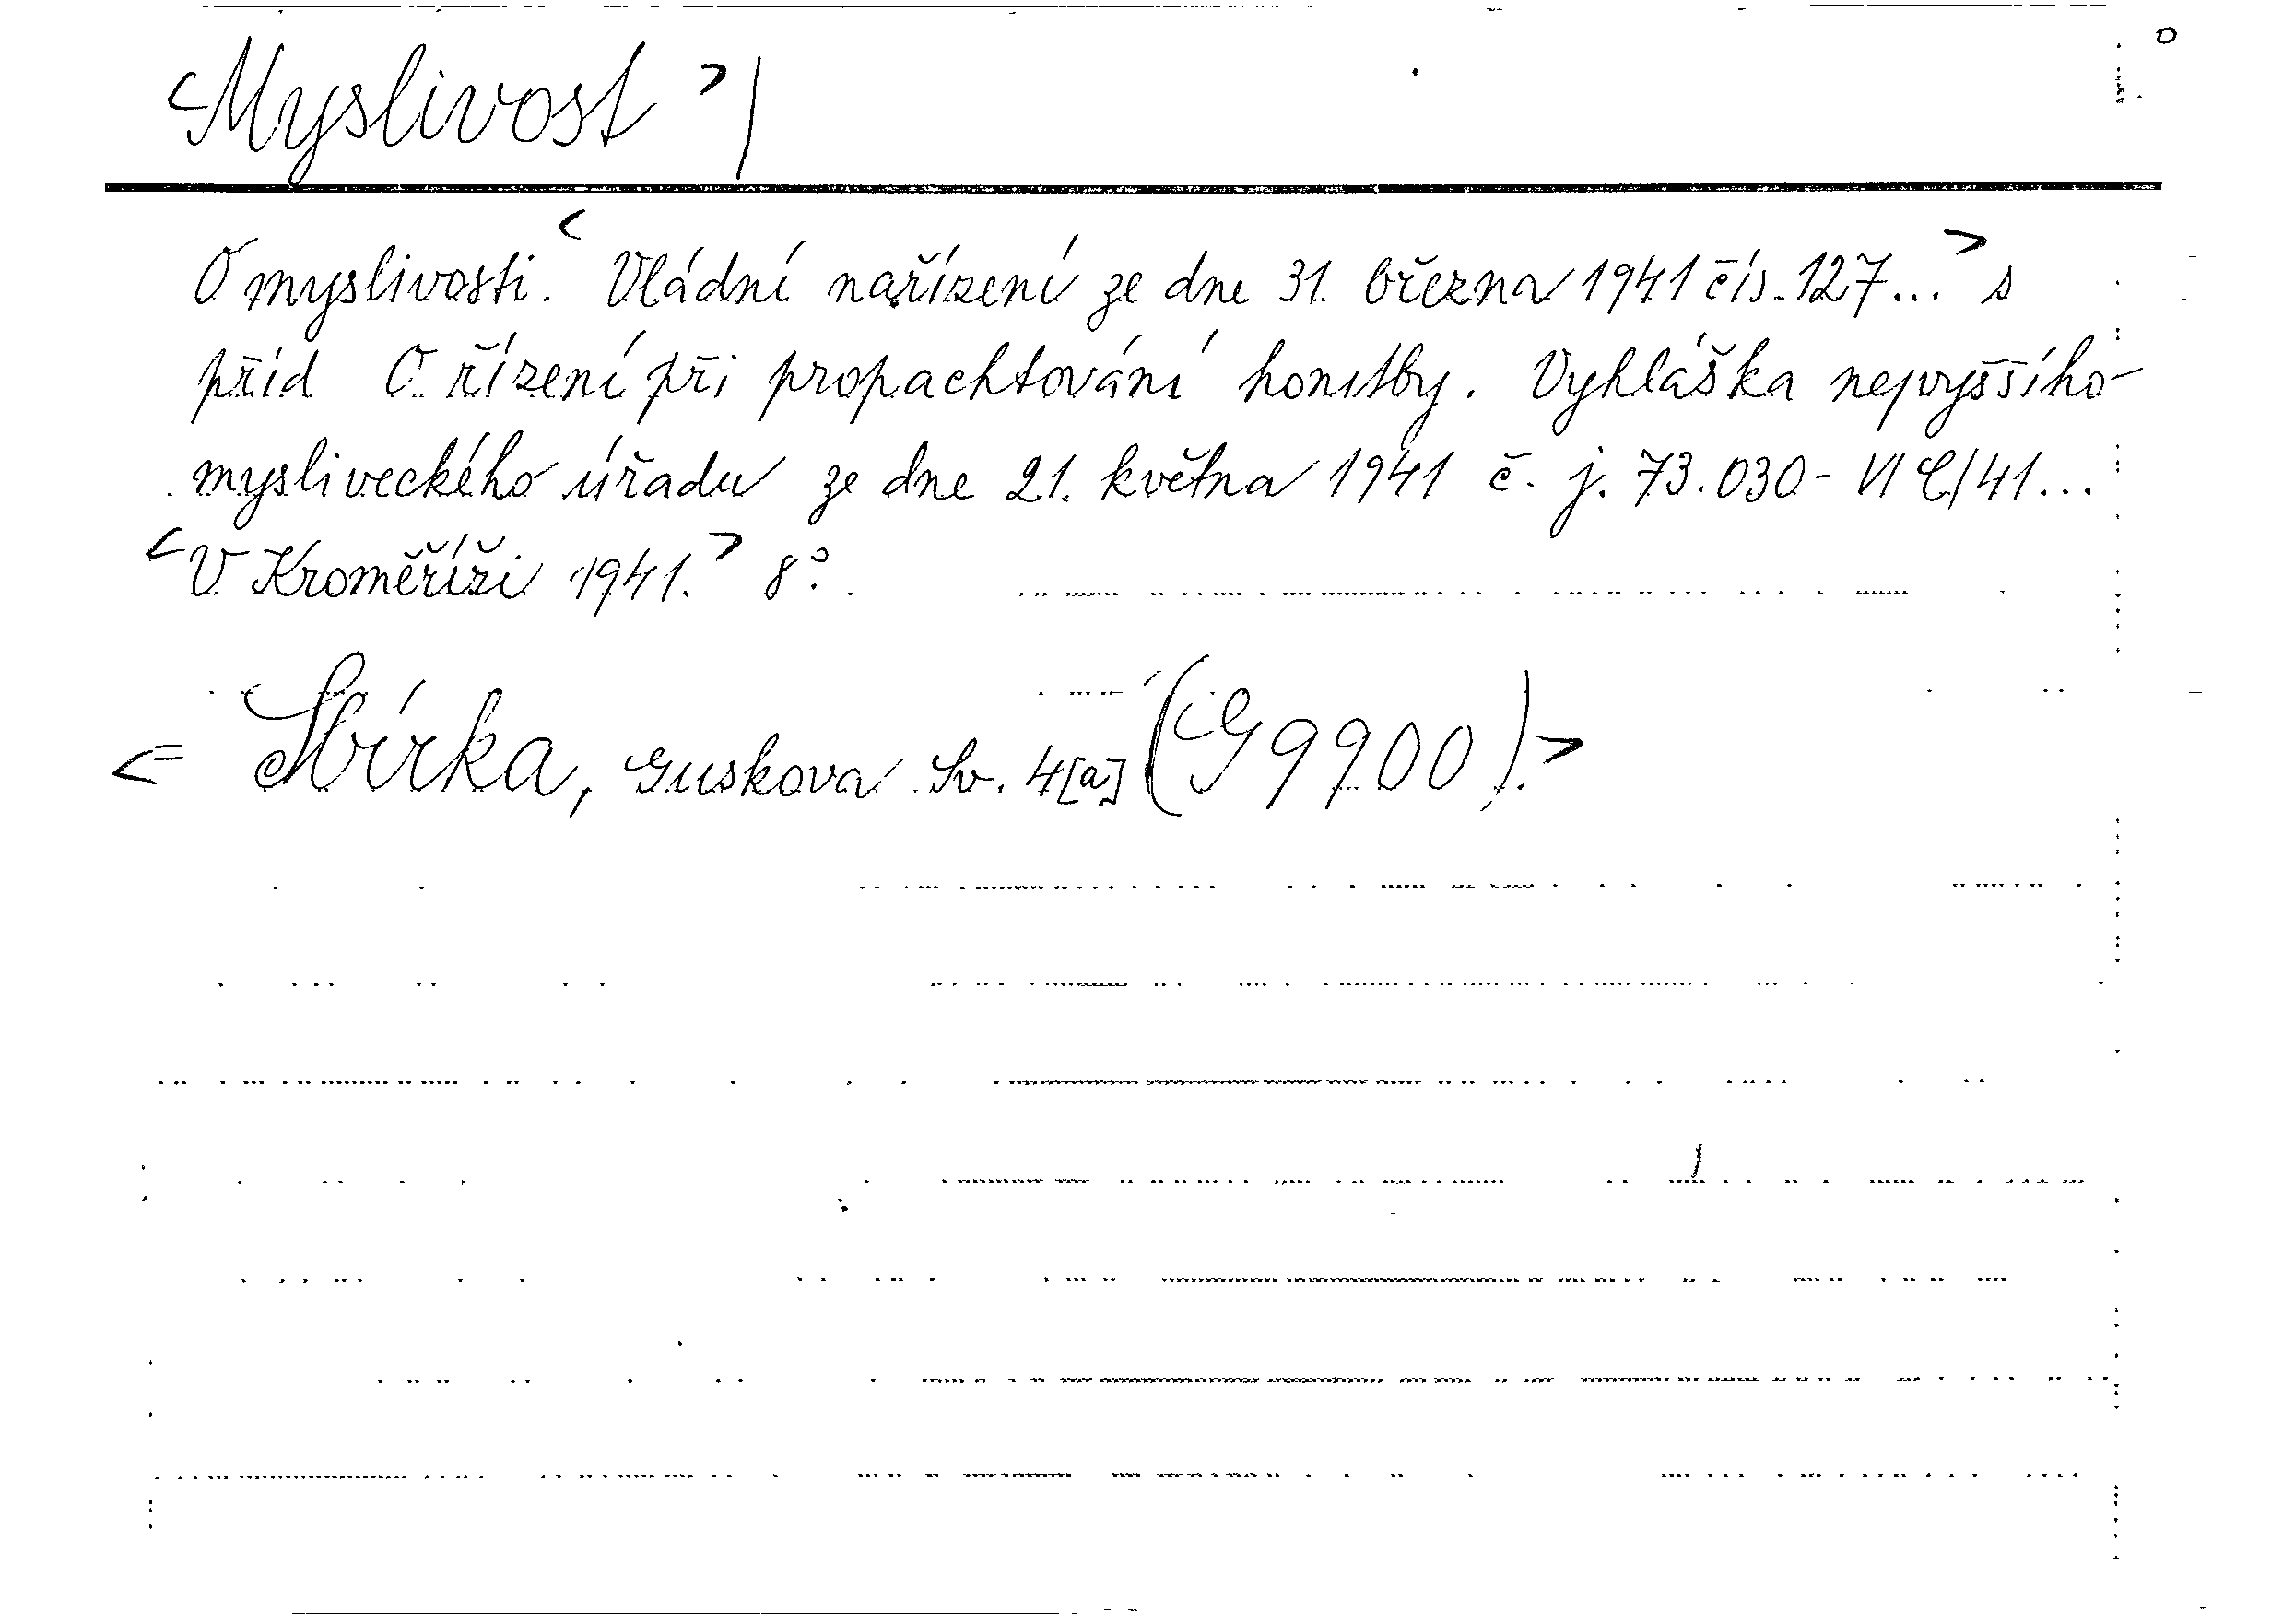 <Myslivost>|
O myslivosti. <Vládní nařízení ze dne 31. března 1941 čís. 127...> s
příd O řízení při propachtování honitby. Vyhláška nejvyššího
mysliveckého úřadu ze dne 21. května 1941 č. j. 73.030-VI C/41...
<V Kroměříži 1941.> 8°.
<= Sbírka, Guskova Sv. 4[a] (G 9900).>